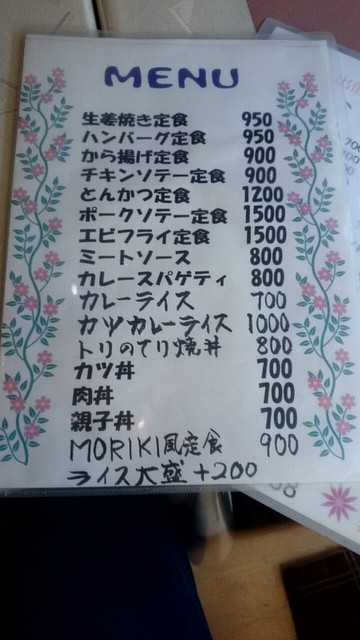 MENU
生姜焼き定食 950
ハンバーグ定食 950
から揚げ定食 900
チキンソテー定食 900
とんかつ定食 1200
ポークソテー定食 1500
エビフライ定食 1500
ミートソース 800
カレースパゲティ 800
カレーライス 700
カツカレーライス 1000
トリのてり焼丼 800
カツ丼 700
肉丼 700
親子丼 700
MORIKI風定食 900
ライス大盛 +200